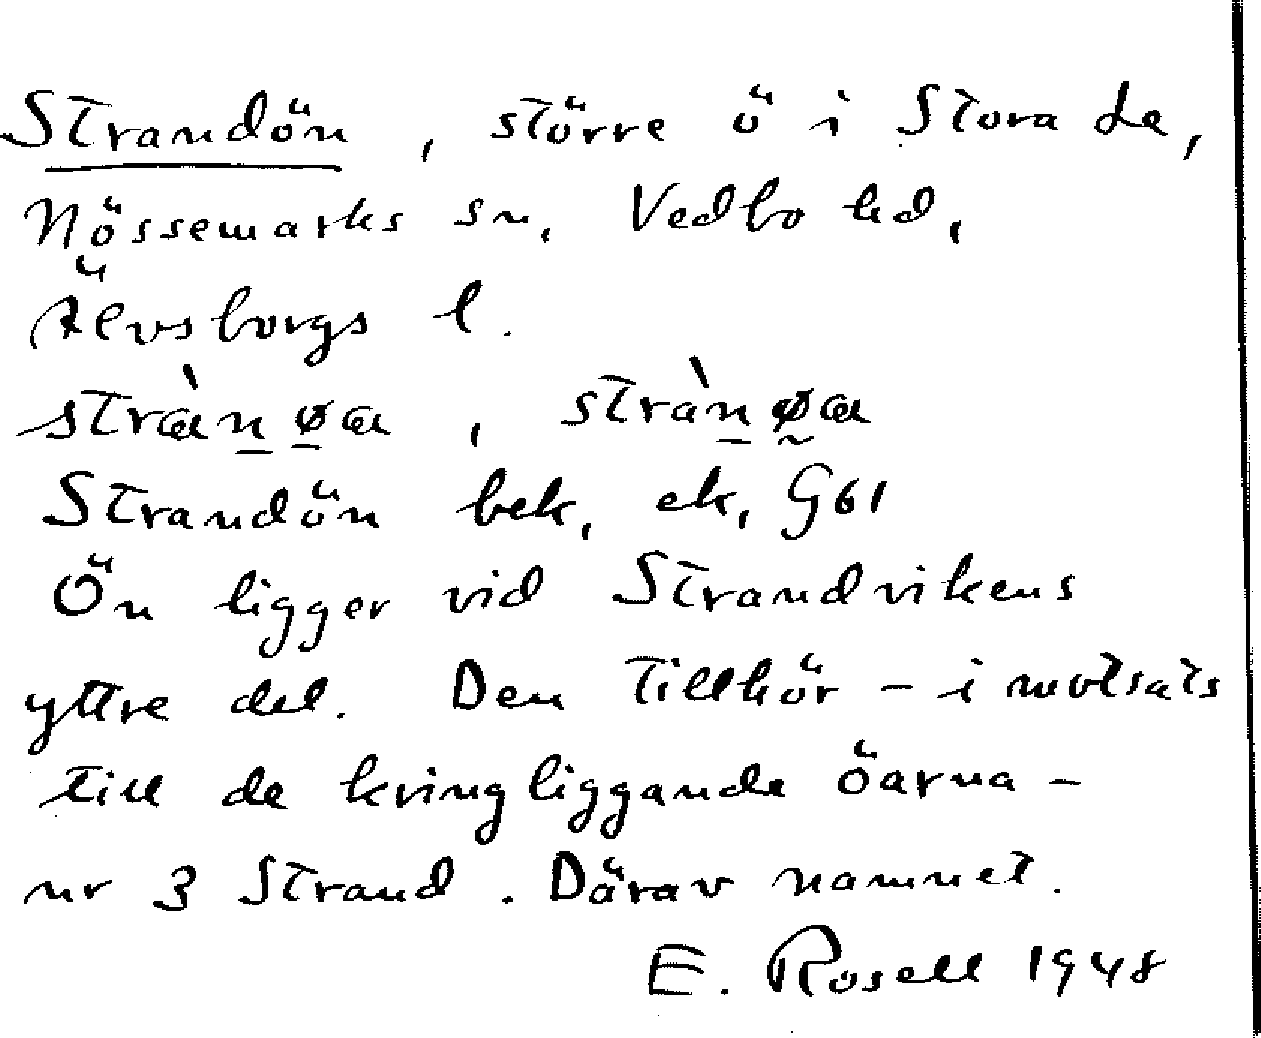 Strandön, större ö i Stora Le,
Nössemarks sn, Vedbo hd,
Älvsborgs l.
stræ̀n̲ø̲a, stràn̲ø̰a
Strandön bek, ek, G61
Ön ligger vid Strandvikens
yttre del. Den tillhör – i motsats
till de kringliggande öarna –
nr 3 Strand. Därav namnet.
E. Rosell 1948